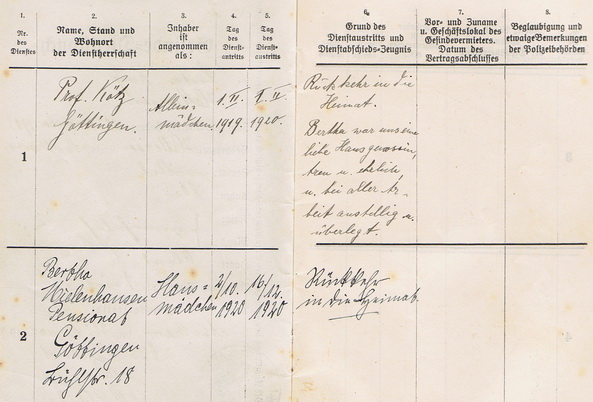 1.
Nr.
des
Dienstes
2.
Name, Stand und
Wohnort
der Dienstherrschaft
3.
Inhaber
ist
angenommen
als:
4.
Tag
des
Dienst-
antritts
5.
Tag
des
Dienst-
austritts
6.
Grund des
Dienstaustritts und
Dienstabschieds-Zeugnis
7.
Vor- und Zuname
u. Geschäftslokal des
Gesindevermieters.
Datum des
Vertragsabschlusses
8.
Beglaubigung und
etwaige Bemerkungen
der Polizeibehörden
1
Prof. Kötz
Göttingen.
Allein-
mädchen.
1. II.
1919.
1920.
Rückkehr in die
Heimat.
Bertha war uns eine
liebe Hausgenossin,
treu u. ehrlich,
u. bei aller Ar-
beit anstellig u.
überlegt.
2
Bertha
Pensionat
Göttingen
Bühlstr. 18
Haus=
mädchen
2/10.
1920
16/12.
1920
Rückkehr
in die Heimat